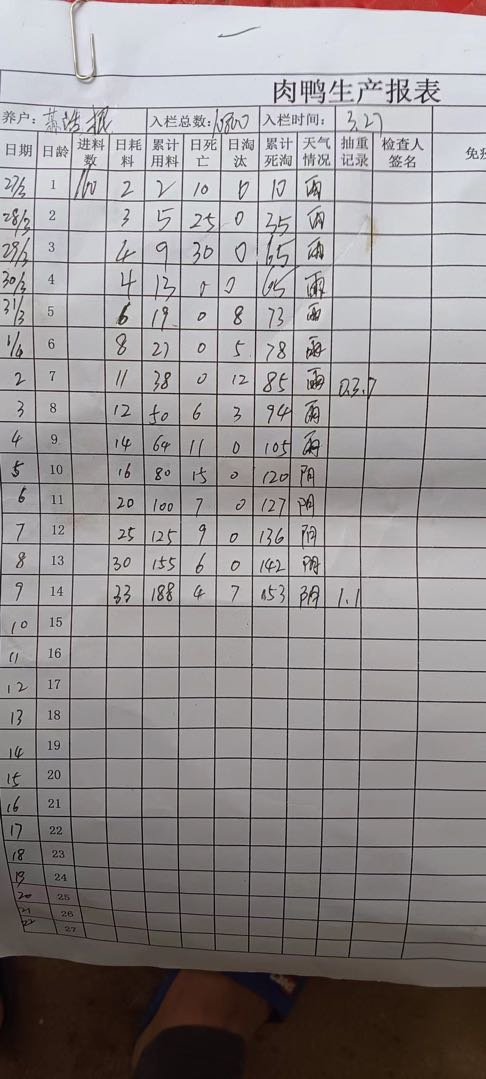 肉鸭生产报表
养户: 入栏总数: 10800 入栏时间: 3.27
日期 日龄 进料数 日耗料 累计用料 日死亡 日淘汰 累计死淘 天气情况 抽重记录 检查人签名 免疫
27/3 1 160 2 2 10 0 10 雨
28/3 2 3 5 25 0 35 雨
29/3 3 4 9 30 0 65 雨
30/3 4 4 13 0 0 65 雨
31/3 5 6 19 0 8 73 雨
1/4 6 8 27 0 5 78 雨
2 7 11 38 0 12 85 雨 0.3.7
3 8 12 50 6 3 94 雨
4 9 14 64 11 0 105 雨
5 10 16 80 15 0 120 阴
6 11 20 100 7 0 127 阴
7 12 25 125 9 0 136 阴
8 13 30 155 6 0 142 阴
9 14 33 188 4 7 153 阴 1.1
10 15
11 16
12 17
13 18
14 19
15 20
16 21
17 22
18 23
19 24
20 25
21 26
22 27